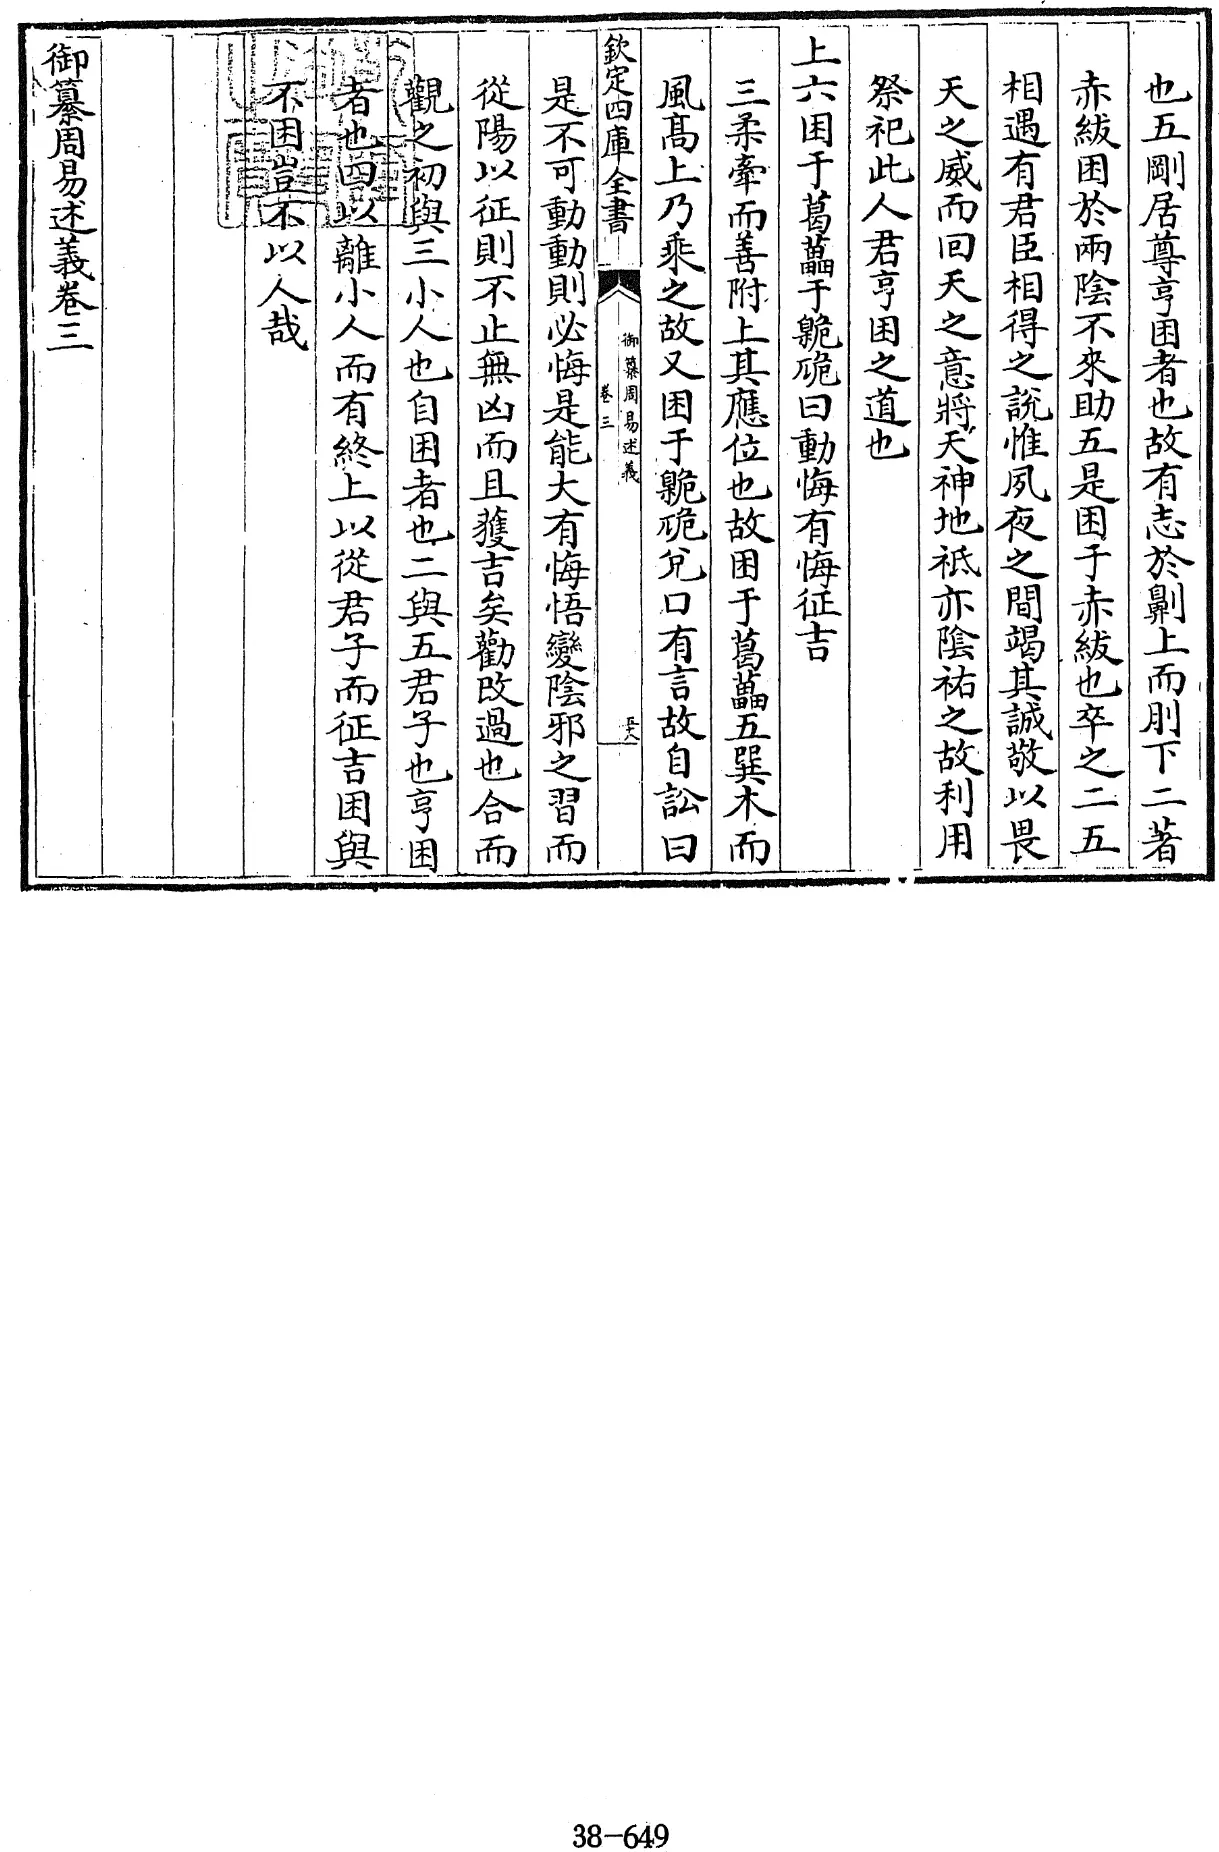 也五剛居尊亨困者也故有志於劓上而刖下二著
赤紱困於兩陰不來助五是困于赤紱也卒之二五
相遇有君臣相得之說惟夙夜之間竭其誠敬以畏
天之威而回天之意將天神地祇亦陰祐之故利用
祭祀此人君亨困之道也
上六困于葛藟于臲卼曰動悔有悔征吉
三柔牽而善附上其應位也故困于葛藟五巽木而
風髙上乃乘之故又困于臲卼兌口有言故自訟曰
欽定四庫全書
御纂周易述義
卷三
是不可動動則必悔是能大有悔悟變陰邪之習而
從陽以征則不止無凶而且獲吉矣勸改過也合而
觀之初與三小人也自困者也二與五君子也亨困
者也四以離小人而有終上以從君子而征吉困與
不困豈不以人哉
御纂周易述義卷三
38-649